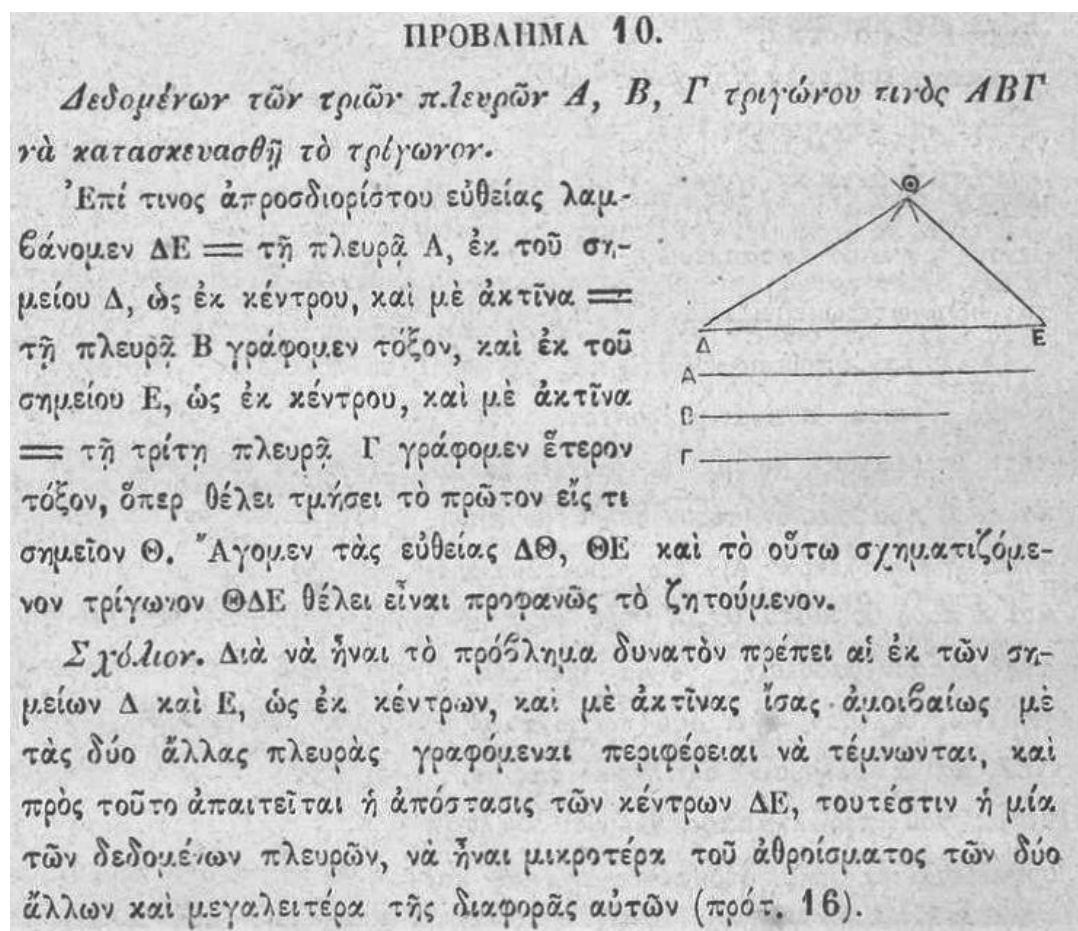 ΠΡΟΒΛΗΜΑ 10.
Δεδομένων τῶν τριῶν πλευρῶν Α, Β, Γ τριγώνου τινὸς ΑΒΓ
νὰ κατασκευασθῇ τὸ τρίγωνον.
Ἐπί τινος ἀπροσδιορίστου εὐθείας λαμ-
ϐάνομεν ΔΕ = τῇ πλευρᾷ Α, ἐκ τοῦ ση-
μείου Δ, ὡς ἐκ κέντρου, καὶ μὲ ἀκτῖνα =
τῇ πλευρᾷ Β γράφομεν τόξον, καὶ ἐκ τοῦ
σημείου Ε, ὡς ἐκ κέντρου, καὶ μὲ ἀκτῖνα
= τῇ τρίτῃ πλευρᾷ Γ γράφομεν ἕτερον
τόξον, ὅπερ θέλει τμήσει τὸ πρῶτον εἴς τι
σημεῖον Θ. Ἄγομεν τὰς εὐθείας ΔΘ, ΘΕ καὶ τὸ οὕτω σχηματιζόμε-
νον τρίγωνον ΘΔΕ θέλει εἶναι προφανῶς τὸ ζητούμενον.
Σχόλιον. Διὰ νὰ ἦναι τὸ πρόϐλημα δυνατὸν πρέπει αἱ ἐκ τῶν ση-
μείων Δ καὶ Ε, ὡς ἐκ κέντρων, καὶ μὲ ἀκτῖνας ἴσας ἀμοιϐαίως μὲ
τὰς δύο ἄλλας πλευρὰς γραφόμεναι περιφέρειαι νὰ τέμνωνται, καὶ
πρὸς τοῦτο ἀπαιτεῖται ἡ ἀπόστασις τῶν κέντρων ΔΕ, τουτέστιν ἡ μία
τῶν δεδομένων πλευρῶν, νὰ ἦναι μικροτέρα τοῦ ἀθροίσματος τῶν δύο
ἄλλων καὶ μεγαλειτέρα τῆς διαφορᾶς αὐτῶν (πρότ. 16).
Θ
Δ Ε
Α
Β
Γ